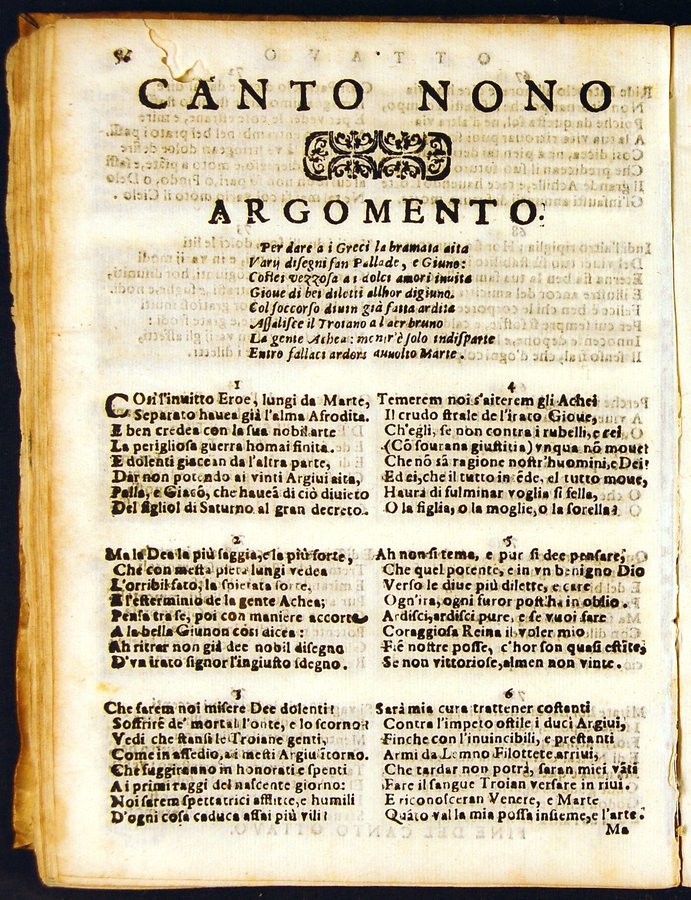 96
CANTO NONO
ARGOMENTO.
Per dare a i Greci la bramata aita
Varij disegni fan Pallade, e Giuno:
Costei vezzosa a i dolci amori inuita
Gioue di bei diletti allhor digiuno.
Col soccorso diuin già fatta ardita
Assalisce il Troiano a l'aer bruno
La gente Achea: mentr'è solo indisparte
Entro fallaci ardori auuolto Marte.
1
COsi l'inuitto Eroe, lungi da Marte,
Separato hauea già l'alma Afrodita.
E ben credea con la sua nobil arte
La perigliosa guerra homai finita.
E dolenti giacean da l'altra parte,
Dar non potendo ai vinti Argiui aita,
Palla, e Giunō, che haueā di ciò diuieto
Del figliol di Saturno al gran decreto.
2
Ma la Dea la più saggia, e la più forte,
Che con mesta pietà lungi vedea
L'orribil fato, la spietata sorte,
E l'esterminio de la gente Achea;
Pensa tra se, poi con maniere accorte
A la bella Giunon così dicea:
Ah ritrar non già dee nobil disegno
D'vn irato signor l'ingiusto sdegno.
3
Che farem noi misere Dee dolenti?
Soffrirē de' mortali l'onte, e lo scorno?
Vedi che stansi le Troiane genti,
Come in assedio, ai mesti Argiui itorno.
Che fuggiranno in honorati e spenti
A i primi raggi del nascente giorno:
Noi sarem spettatrici afflitte, e humili
D'ogni cosa caduca assai più vili?
4
Temerem noi s'aiterem gli Achei
Il crudo strale de l'irato Gioue,
Ch'egli, se non contra i rubelli, e rei
(Cō sourana giustitia) vnqua nō moue?
Che nō sā ragione nostr'huomini, e Dei?
Ed ei, che il tutto intēde, el tutto moue,
Haurà di fulminar voglia sì fella,
O la figlia, o la moglie, o la sorella?
5
Ah non si tema, e pur si dee pensare,
Che quel potente, e in vn benigno Dio
Verso le diue più dilette, e care
Ogn'ira, ogni furor post'ha in oblio.
Ardisci, ardisci pure, e se vuoi fare
Coraggiosa Reina il voler mio
Fiē nostre posse, c'hor son quasi estīte,
Se non vittoriose, almen non vinte.
6
Sarà mia cura trattener costanti
Contra l'impeto ostile i duci Argiui,
Finche con l'inuincibili, e prestanti
Armi da Lemno Filottete arriui,
Che tardar non potrà, saran miei vāti
Fare il sangue Troian versare in riui.
E riconosceran Venere, e Marte
Quāto val la mia possa insieme, e l'arte.
Ma